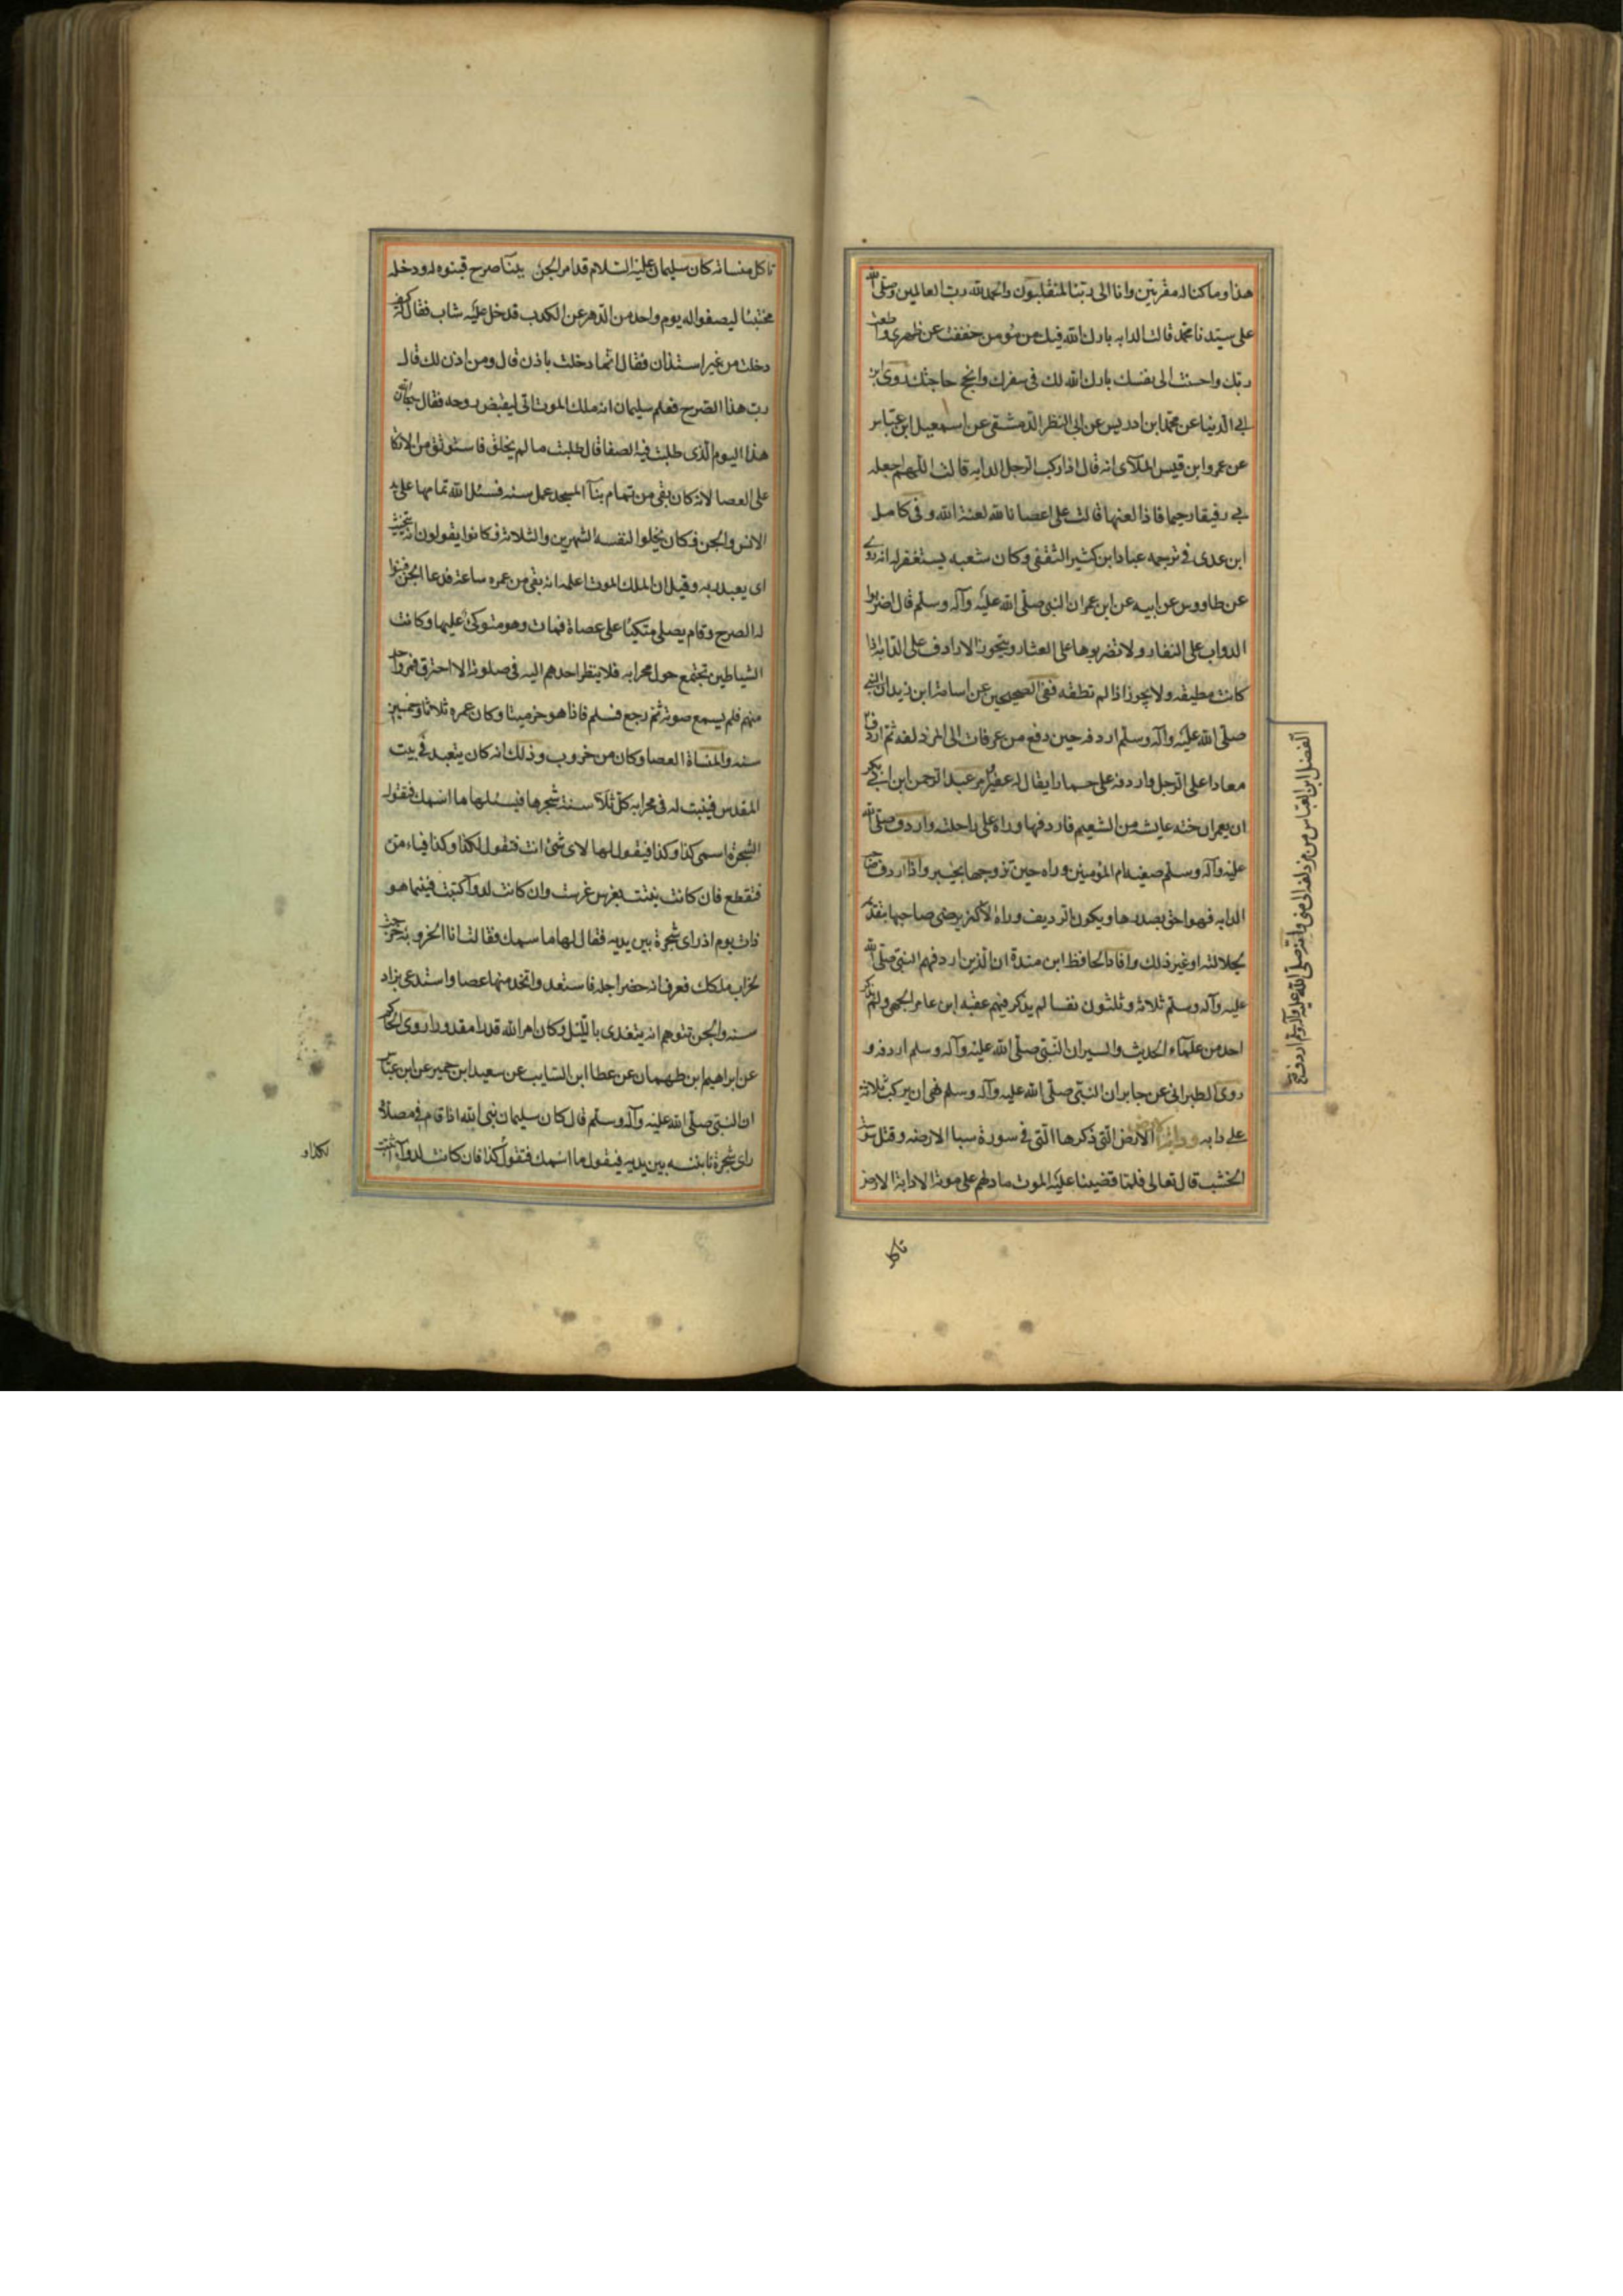 هذا وما كنا له مقرنين وانا الى ربنا لمنقلبون والحمد لله رب العالمين وصلى الله
على سيدنا محمد قالت الدابه بارك الله فيك من مؤمن خففت عن ظهري واطعت
ربك واحسنت الى نفسك بارك الله لك فى سفرك وانجح حاجتك روى ابن
ابى الدنيا عن محمد ابن ادريس عن ابى النظر الدمشقى عن اسمعيل ابن عياس
عن عمرو ابن قيس الملآئ انه قال اذا ركب الرجل الدابه قالت اللهم اجعله
بى رفيقا رحيما فاذا لعنها قالت على اعصانا لله لعنة الله وفى كامل
ابن عدى فى ترجمه عباد ابن كثير الثقفى وكان شعبه يستغفر له انه روى
عن طاووس عن ابيه عن ابن عمر ان النبى صلى الله عليه وآله وسلم قال اضربوا
الدواب على النفار ولا تضربوها على العثار ويجوز الارداف على الدابة اذا
كانت مطيقه ولا يجوز اذا لم تطقه ففى الصحيحين عن اسامة ابن زيد ان النبى
صلى الله عليه وآله وسلم اردفه حين دفع من عرفات الى المزدلفه ثم اردف
معاذا على الرحل واردفه على حمار يقال له عفير وامر عبد الرحمن ابن ابى بكر
ان يعمر ان خته عايشه من التنعيم فاردفها وراه على راحلته واردف صلى الله
عليه وآله وسلم صفيه ام المؤمنين وراه حين تزوجها بخيبر واذا اردف صاحب
الدابه فهو احق بصدرها ويكون الرديف وراه الا ان يرضى صاحبها بتقديمه
لجلالته او غير ذلك وافاد الحافظ ابن مندة ان الذين اردفهم النبى صلى الله
عليه وآله وسلم ثلاثة وثلثون نفسا لم يذكر فيهم عقبه ابن عامر الجهى ولم يذكر
احد من علمآء الحديث والسير ان النبى صلى الله عليه وآله وسلم اردفه و
روى الطبرانى عن جابر ان النبى صلى الله عليه وآله وسلم نهى ان يركب ثلاثة
على دابه ودابة الارض التى ذكرها التى فى سورة سبا الارضه وقيل سوس
الخشب قال تعالى فلما قضينا عليه الموت ما دلهم على موته الا دابة الارض
الفضل ابن العباس من مزدلفه الى منى وانه صلى الله عليه وآله وسلم اردف
تاكل
تاكل منساته كان سليمان عليه السلام قد امر الجن ببنآ صرح فبنوه له ودخله
مختبئا ليصفو اله يوم واحد من الدهر عن الكدب فدخل عليه شاب فقال له كيف
دخلت من غير استئذان فقال انما دخلت باذن قال ومن اذن لك قال
رب هذا الصرح فعلم سليمان انه ملك الموت اتى ليقبض روحه فقال سبحان الله
هذا اليوم الذى طلبت فيه الصفا قال طلبت ما لم يخلق فاستوثق من الاتكا
على العصا لانه كان بقى من تمام بنآ المسجد عمل سنه فسئل الله تمامها على يد
الانس والجن فكان يخلوا لنفسه الشهرين والثلاثة فكانوا يقولون انه يتحنث
اى يعبد ربه وقيل ان الملك الموت اعلمه انه بقى من عمره ساعة فدعا الجن فبنوا
له الصرح وقام يصلى متكيا على عصاة فمات وهو متوكئ عليها وكانت
الشياطين تجتمع حول محرابه فلا ينظر احدهم اليه فى صلوته الا احترق فمر واحد
منهم فلم يسمع صوته ثم رجع فسلم فاذا هو خر ميتا وكان عمره ثلاثا وخمسين
سنه والمنساة العصا وكان من خروب وذلك انه كان يتعبد فى بيت
المقدس فينبت له فى محرابه كل ثلآ سنة شجرها فيسئلها ما اسمك فتقول
الشجرة اسمى كذا وكذا فيقول لها لاى شئ انت فتقول لكذا وكذا فياء من
فتقطع فان كانت بنتت لغرس غرست وان كانت لدوآ كتبت فبينما هو
ذات يوم اذ راى شجرة بين يديه فقال لها ما سمك فقالت انا الخروبه خرجت
لخراب ملكك فعرف انه حضر اجله فاستعد واتخد منها عصا واستدعى بزاد
سنه والجن تتوهم انه يتغدى بالليل وكان امر الله قدرا مقدورا روى الحاكم
عن ابراهيم ابن طهمان عن عطا ابن السايب عن سعيد ابن جبير عن ابن عباس
ان النبى صلى الله عليه وآله وسلم قال كان سليمان نبى الله اذا قام فى مصلاه
راى شجرة نابته بين يديه فيقول ما اسمك فتقول كذا فان كانت لدوآ كتبت